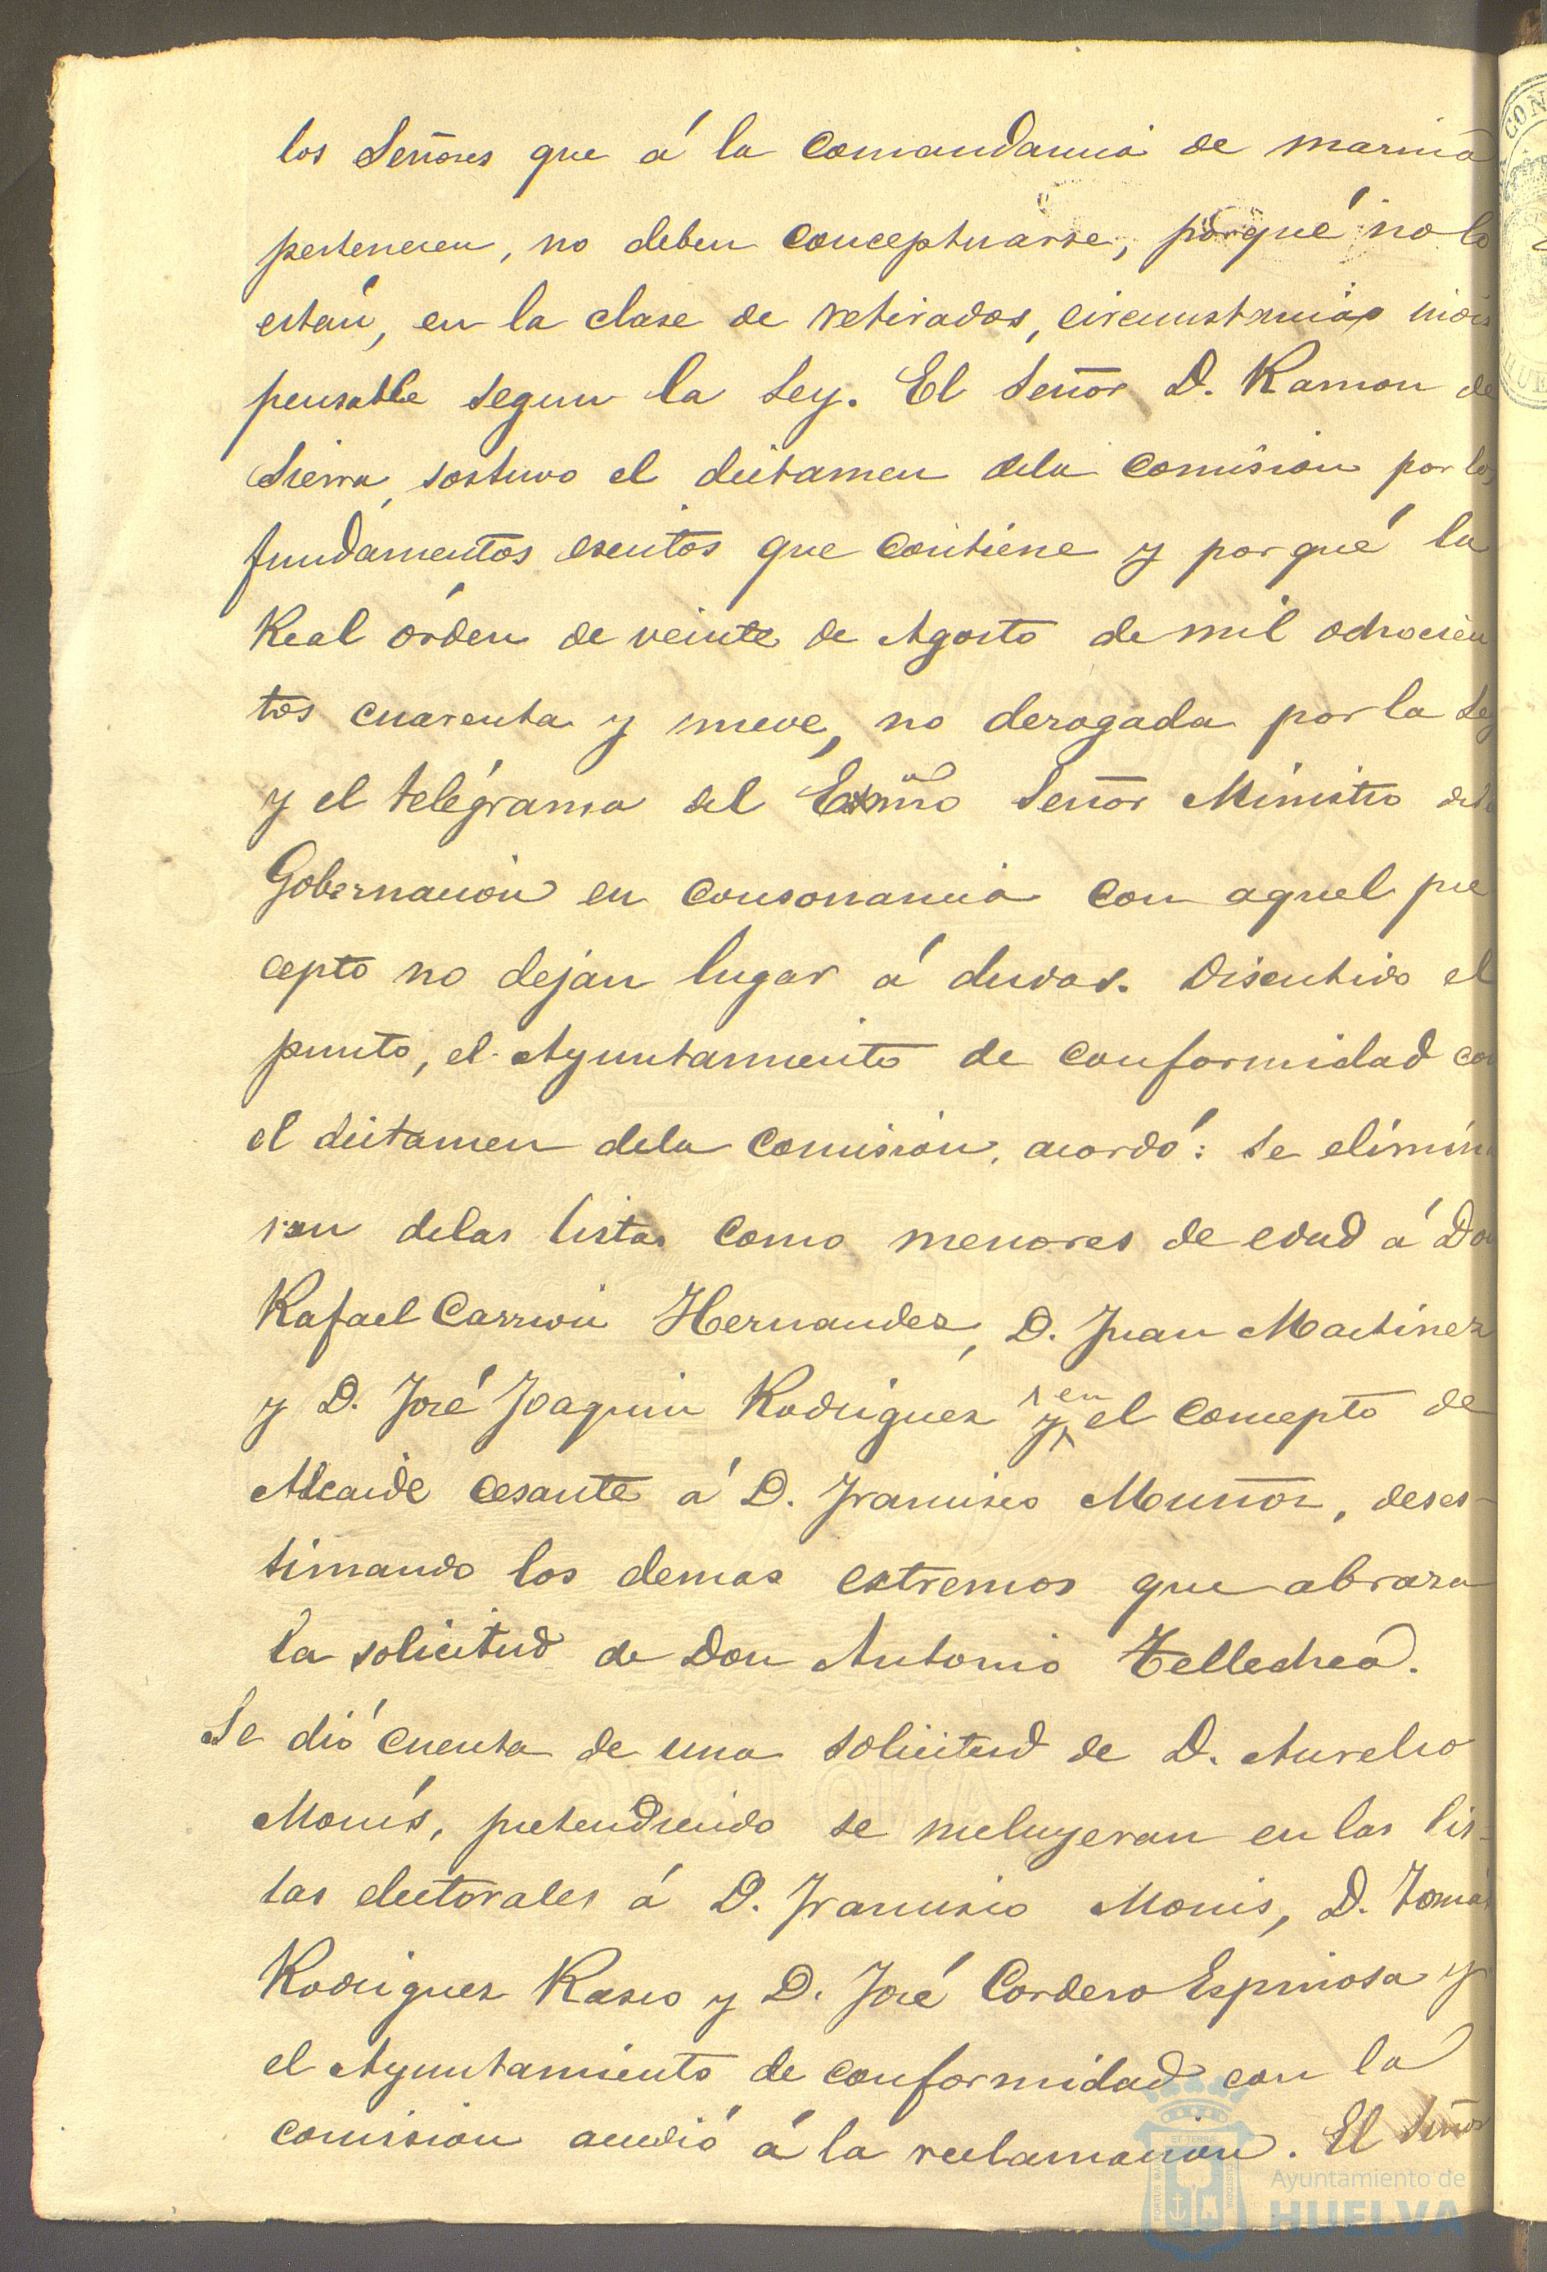 los Señores que á la Comandancia de marina
pertenecen, no deben conceptuarse, porqué no lo
están, en la clase de retirados, circunstancias indis
pensable segun la Ley. El Señor D. Ramon de
Sierra, sostuvo el dictamen dela Comision por los
fundamentos escritos que contiene y porqué la
Real órden de veinte de Agosto de mil ochocien
tos cuarenta y nueve, no derogada por la Ley
y el telégrama del Exmo Señor Ministro dela
Gobernacion en consonancia con aquel pre
cepto no dejan lugar á dudas. Discutido el
punto, el Ayuntamiento de conformidad con
el dictamen dela Comision, acordó: se elimina
ran delas listas como menores de edad á Don
Rafael Carrion Hernandez, D. Juan Martinez
y D. José Joaquin Rodriguez y en el concepto de
Alcaide cesante á D. Francisco Muñoz, deses-
timando los demas extremos que abraza
la solicitud de Don Antonio Tellechea.
Se dió cuenta de una solicitud de D. Aurelio
Monís, pretendiendo se incluyeran en las lis-
tas electorales á D. Francisco Monis, D. Tomás
Rodriguez Rasco y D. José Cordero Espinosa y
el Ayuntamiento de conformidad con la
comision accedió á la reclamacion. El Señor
Ayuntamiento de
HUELVA